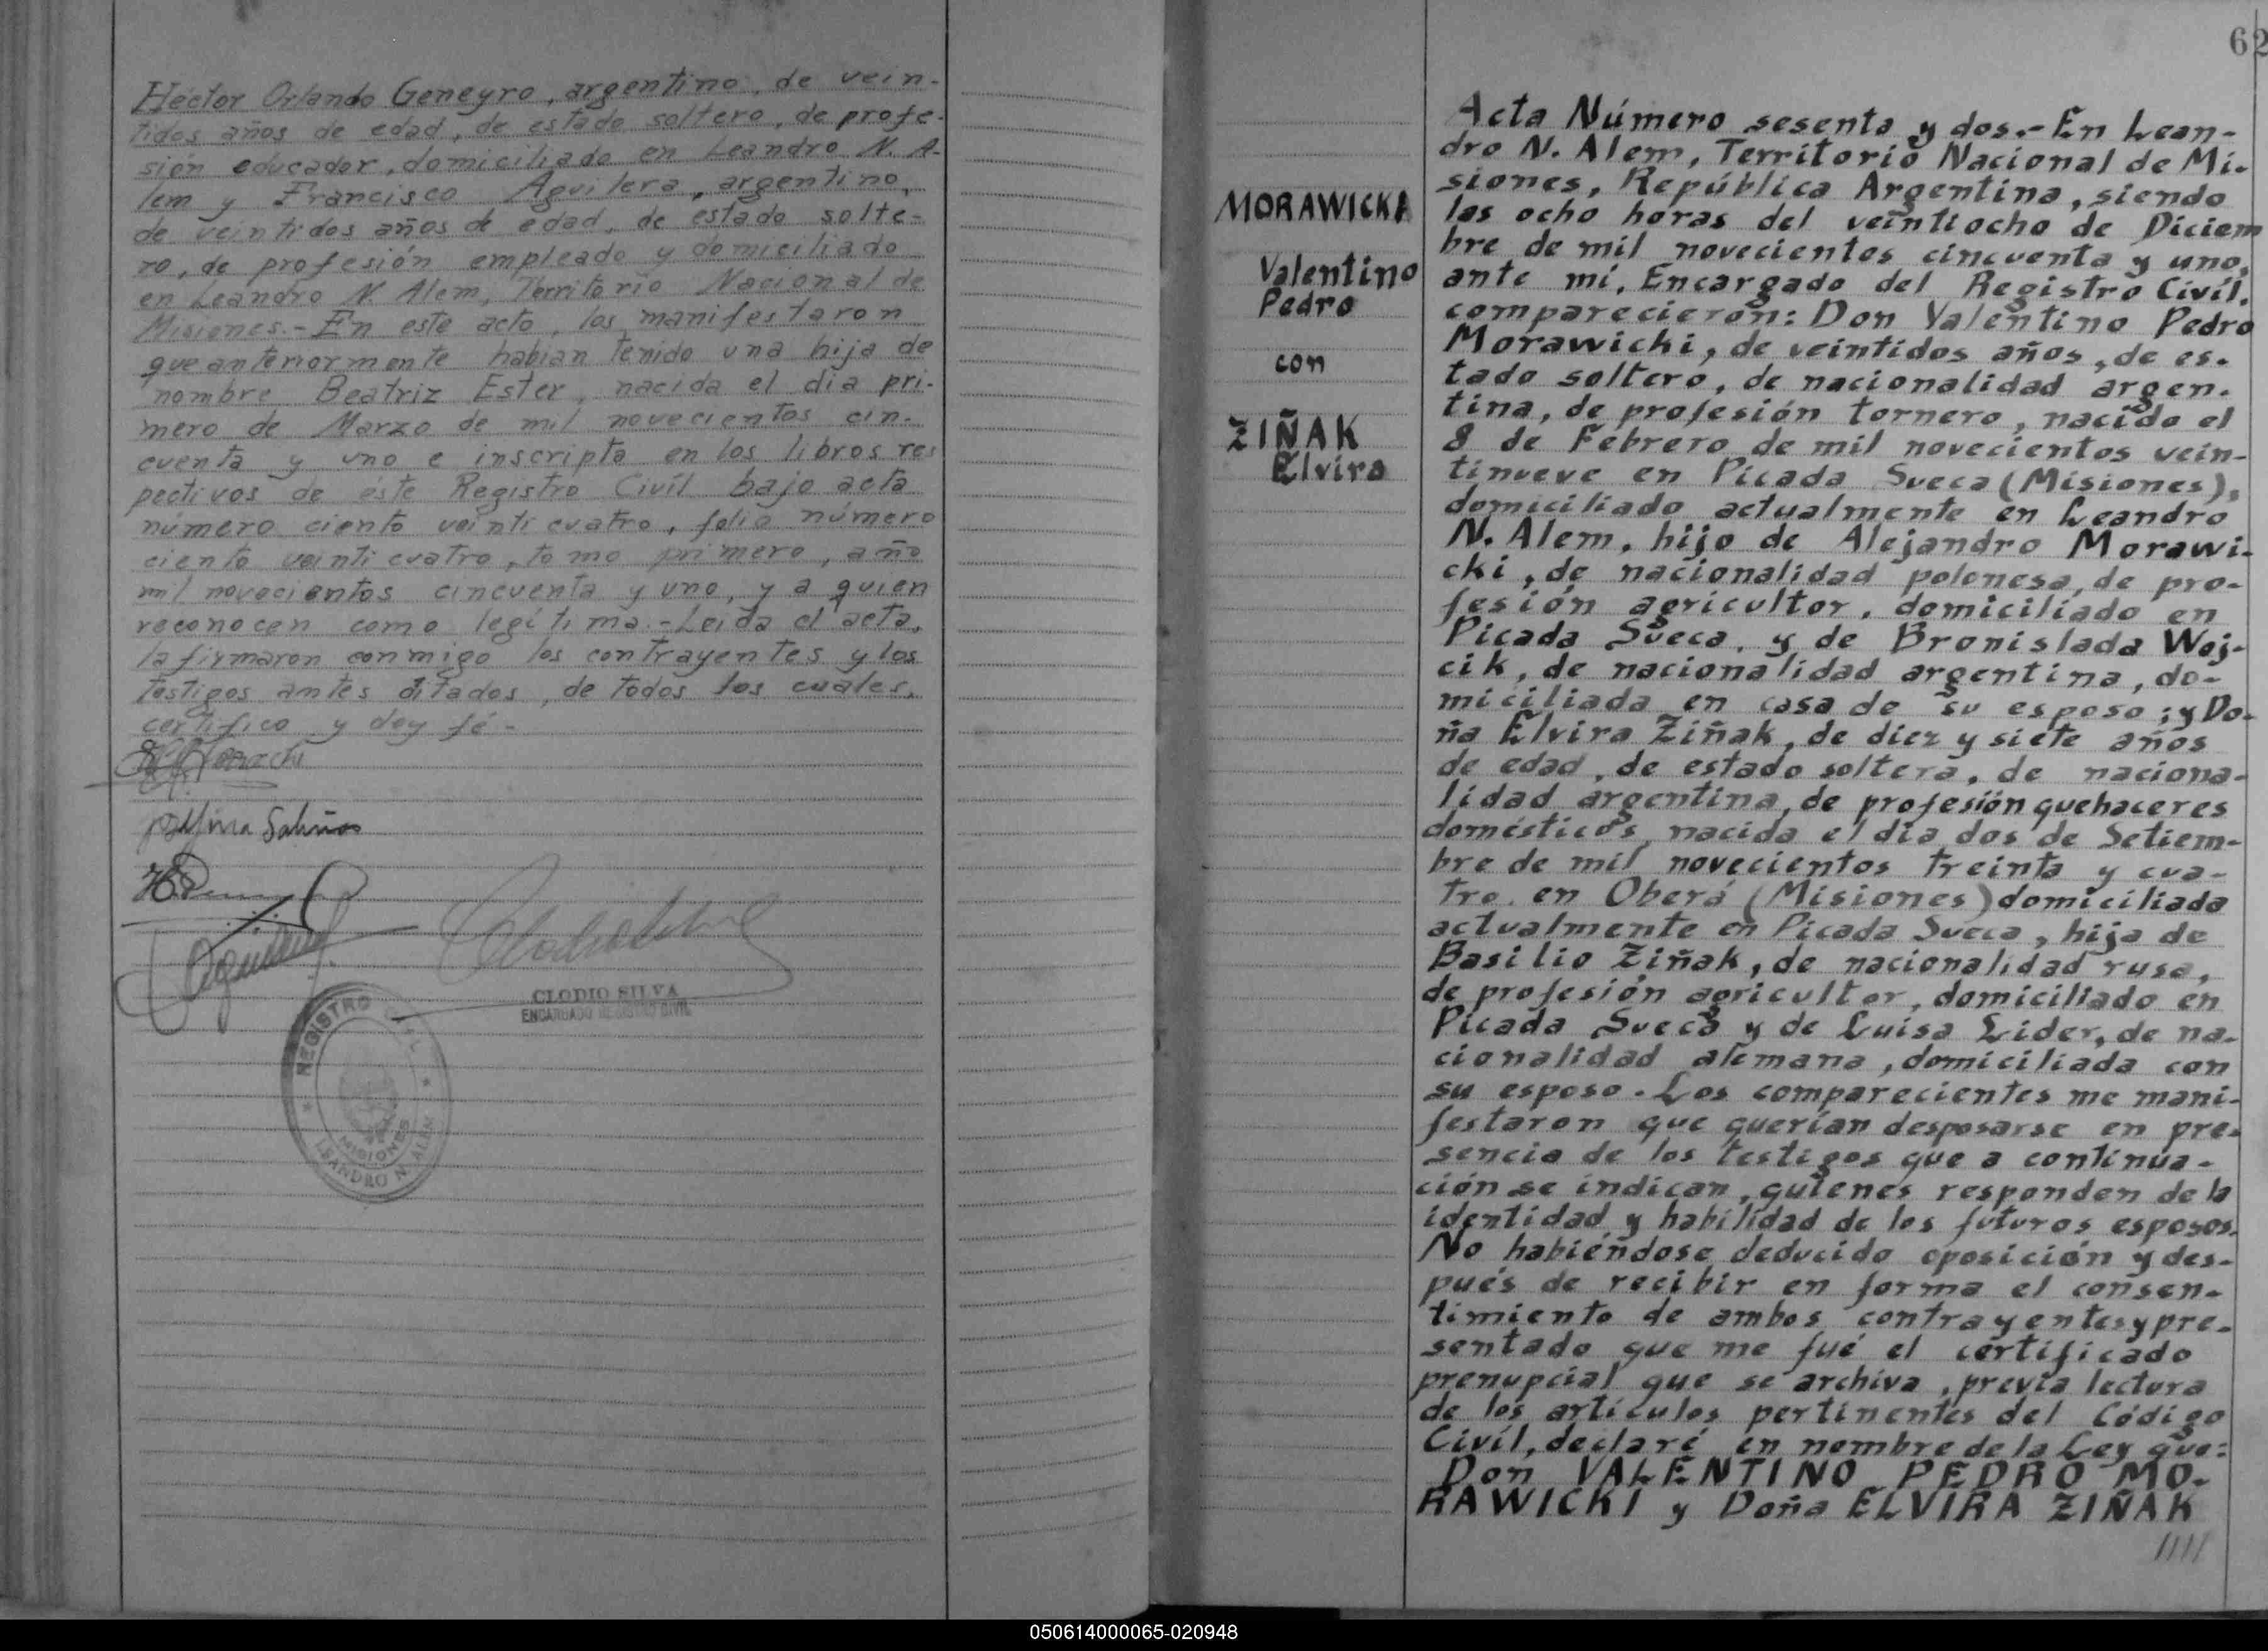 Héctor Orlando Geneyro, argentino, de vein-
tidos años de edad, de estado soltero, de profe-
sión educador, domiciliado en Leandro N. A-
lem y Francisco Aguilera, argentino,
de veintidos años de edad, de estado solte-
ro, de profesión empleado y domiciliado
en Leandro N. Alem, Territorio Nacional de
Misiones.- En este acto, los manifestaron
que anteriormente habían tenido una hija de
nombre Beatriz Ester, nacida el día pri-
mero de Marzo de mil novecientos cin-
cuenta y uno e inscripta en los libros res
pectivos de éste Registro Civíl bajo acta
número ciento veinticuatro, folio número
ciento veinticuatro, tomo primero, año
mil novecientos cincuenta y uno, y a quien
reconocen como legítima.- Leída el acta,
la firmaron conmigo los contrayentes y los
testigos antes citados, de todos los cuales,
certifico y doy fé.-
CLODIO SILVA
ENCARGADO REGISTRO CIVIL
REGISTRO CIVIL
MISIONES
LEANDRO N. ALEM
62
MORAWICKI
Valentino
Pedro
con
ZIÑAK
Elvira
Acta Número sesenta y dos.- En Lean-
dro N. Alem, Territorio Nacional de Mi-
siones, República Argentina, siendo
las ocho horas del veintiocho de Diciem
bre de mil novecientos cincuenta y uno,
ante mí, Encargado del Registro Civíl,
comparecieron: Don Valentino Pedro
Morawicki, de veintidos años, de es-
tado soltero, de nacionalidad argen-
tina, de profesión tornero, nacido el
8 de Febrero de mil novecientos vein-
tinueve en Picada Sueca (Misiones),
domiciliado actualmente en Leandro
N. Alem, hijo de Alejandro Morawi-
cki, de nacionalidad polonesa, de pro-
fesión agricultor, domiciliado en
Picada Sueca, y de Bronislada Woj-
cik, de nacionalidad argentina, do-
miciliada en casa de su esposo; y Do-
ña Elvira Ziñak, de diez y siete años
de edad, de estado soltera, de naciona-
lidad argentina, de profesión quehaceres
domésticos, nacida el día dos de Setiem-
bre de mil novecientos treinta y cua-
tro, en Oberá (Misiones) domiciliada
actualmente en Picada Sueca, hija de
Basilio Ziñak, de nacionalidad rusa,
de profesión agricultor, domiciliado en
Picada Sueca y de Luisa Lider, de na-
cionalidad alemana, domiciliada con
su esposo. Los comparecientes me mani-
festaron que querían desposarse en pre-
sencia de los testigos que a continua-
ción se indican, quienes responden de la
identidad y habilidad de los futuros esposos.
No habiéndose deducido oposición y des-
pués de recibir en forma el consen-
timiento de ambos contrayentes y pre-
sentado que me fué el certificado
prenupcial que se archiva, previa lectura
de los artículos pertinentes del Código
Civíl, declaré en nombre de la Ley que:
Don VALENTINO PEDRO MO-
RAWICKI y Doña ELVIRA ZIÑAK
////
050614000065-020948